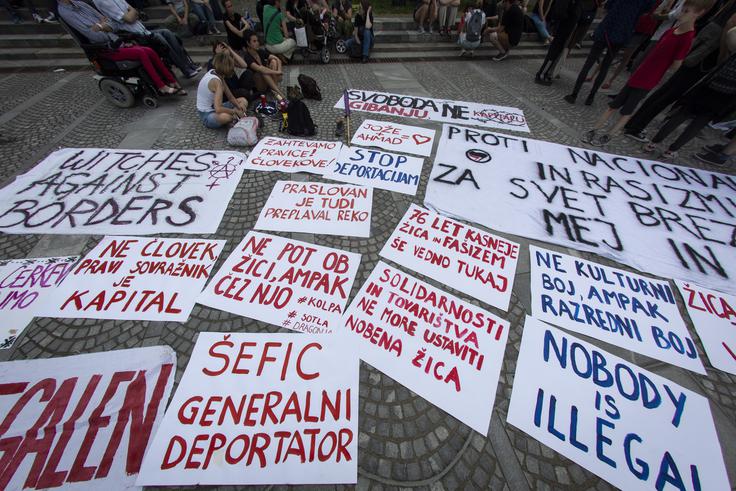 SVOBODA NE
GIBANJU KAPITALU
JOŽE +
AHMAD = ♡
ZAHTEVAMO
PRAVICE!
ČLOVEKOVE!
STOP
DEPORTACIJAM
WITCHES
AGAINST
BORDERS
PRASLOVAN
JE TUDI
PREPLAVAL REKO
PROTI NACIONA
IN RASIZMU
ZA SVET BREZ
MEJ IN
NE ČLOVEK,
PRAVI SOVRAŽNIK
JE
KAPITAL
NE POT OB
ŽICI, AMPAK
ČEZ NJO
#KOLPA
#SOTLA
#DRAGONJA
76 LET KASNEJE
ŽICA IN FAŠIZEM
ŠE VEDNO TUKAJ
SOLIDARNOSTI
IN TOVARIŠTVA
NE MORE USTAVITI
NOBENA ŽICA
NE KULTURNI
BOJ, AMPAK
RAZREDNI BOJ
ŽICA
ŠEFIC
GENERALNI
DEPORTATOR
NOBODY
IS
ILLEGAL
EGALEN